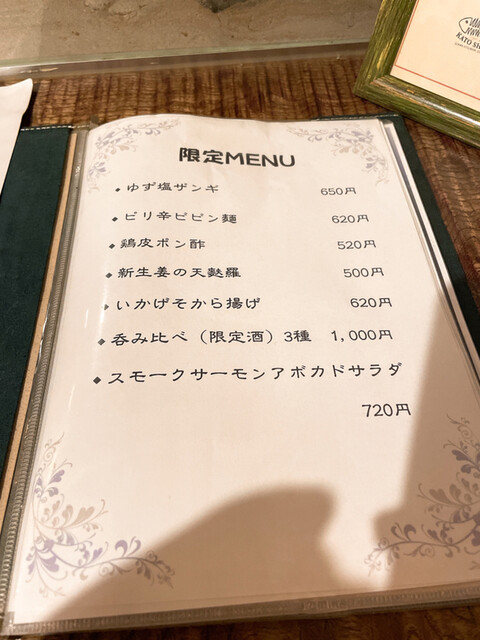 KATO
限定MENU
◆ゆず塩ザンギ 650円
◆ピリ辛ビビン麺 620円
◆鶏皮ポン酢 520円
◆新生姜の天麩羅 500円
◆いかげそから揚げ 620円
◆呑み比べ（限定酒）3種 1,000円
◆スモークサーモンアボカドサラダ
720円